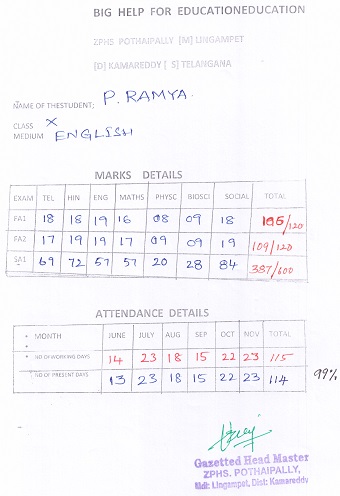 BIG HELP FOR EDUCATIONEDUCATION
ZPHS POTHAIPALLY [M] LINGAMPET
[D] KAMAREDDY [ S] TELANGANA
NAME OF THESTUDENT; P. RAMYA.
CLASS X
MEDIUM ENGLISH
MARKS DETAILS
EXAM TEL HIN ENG MATHS PHYSC BIOSCI SOCIAL TOTAL
FA1 18 18 19 16 08 09 18 106/120
FA2 17 19 19 17 09 09 19 109/120
SA1 69 72 57 57 20 28 84 387/600
ATTENDANCE DETAILS
MONTH JUNE JULY AUG SEP OCT NOV TOTAL
NO OF WORKING DAYS 14 23 18 15 22 23 115
NO OF PRESENT DAYS 13 23 18 15 22 23 114 99%
Gazetted Head Master
ZPHS. POTHAIPALLY,
Mdl: Lingampet, Dist: Kamareddy